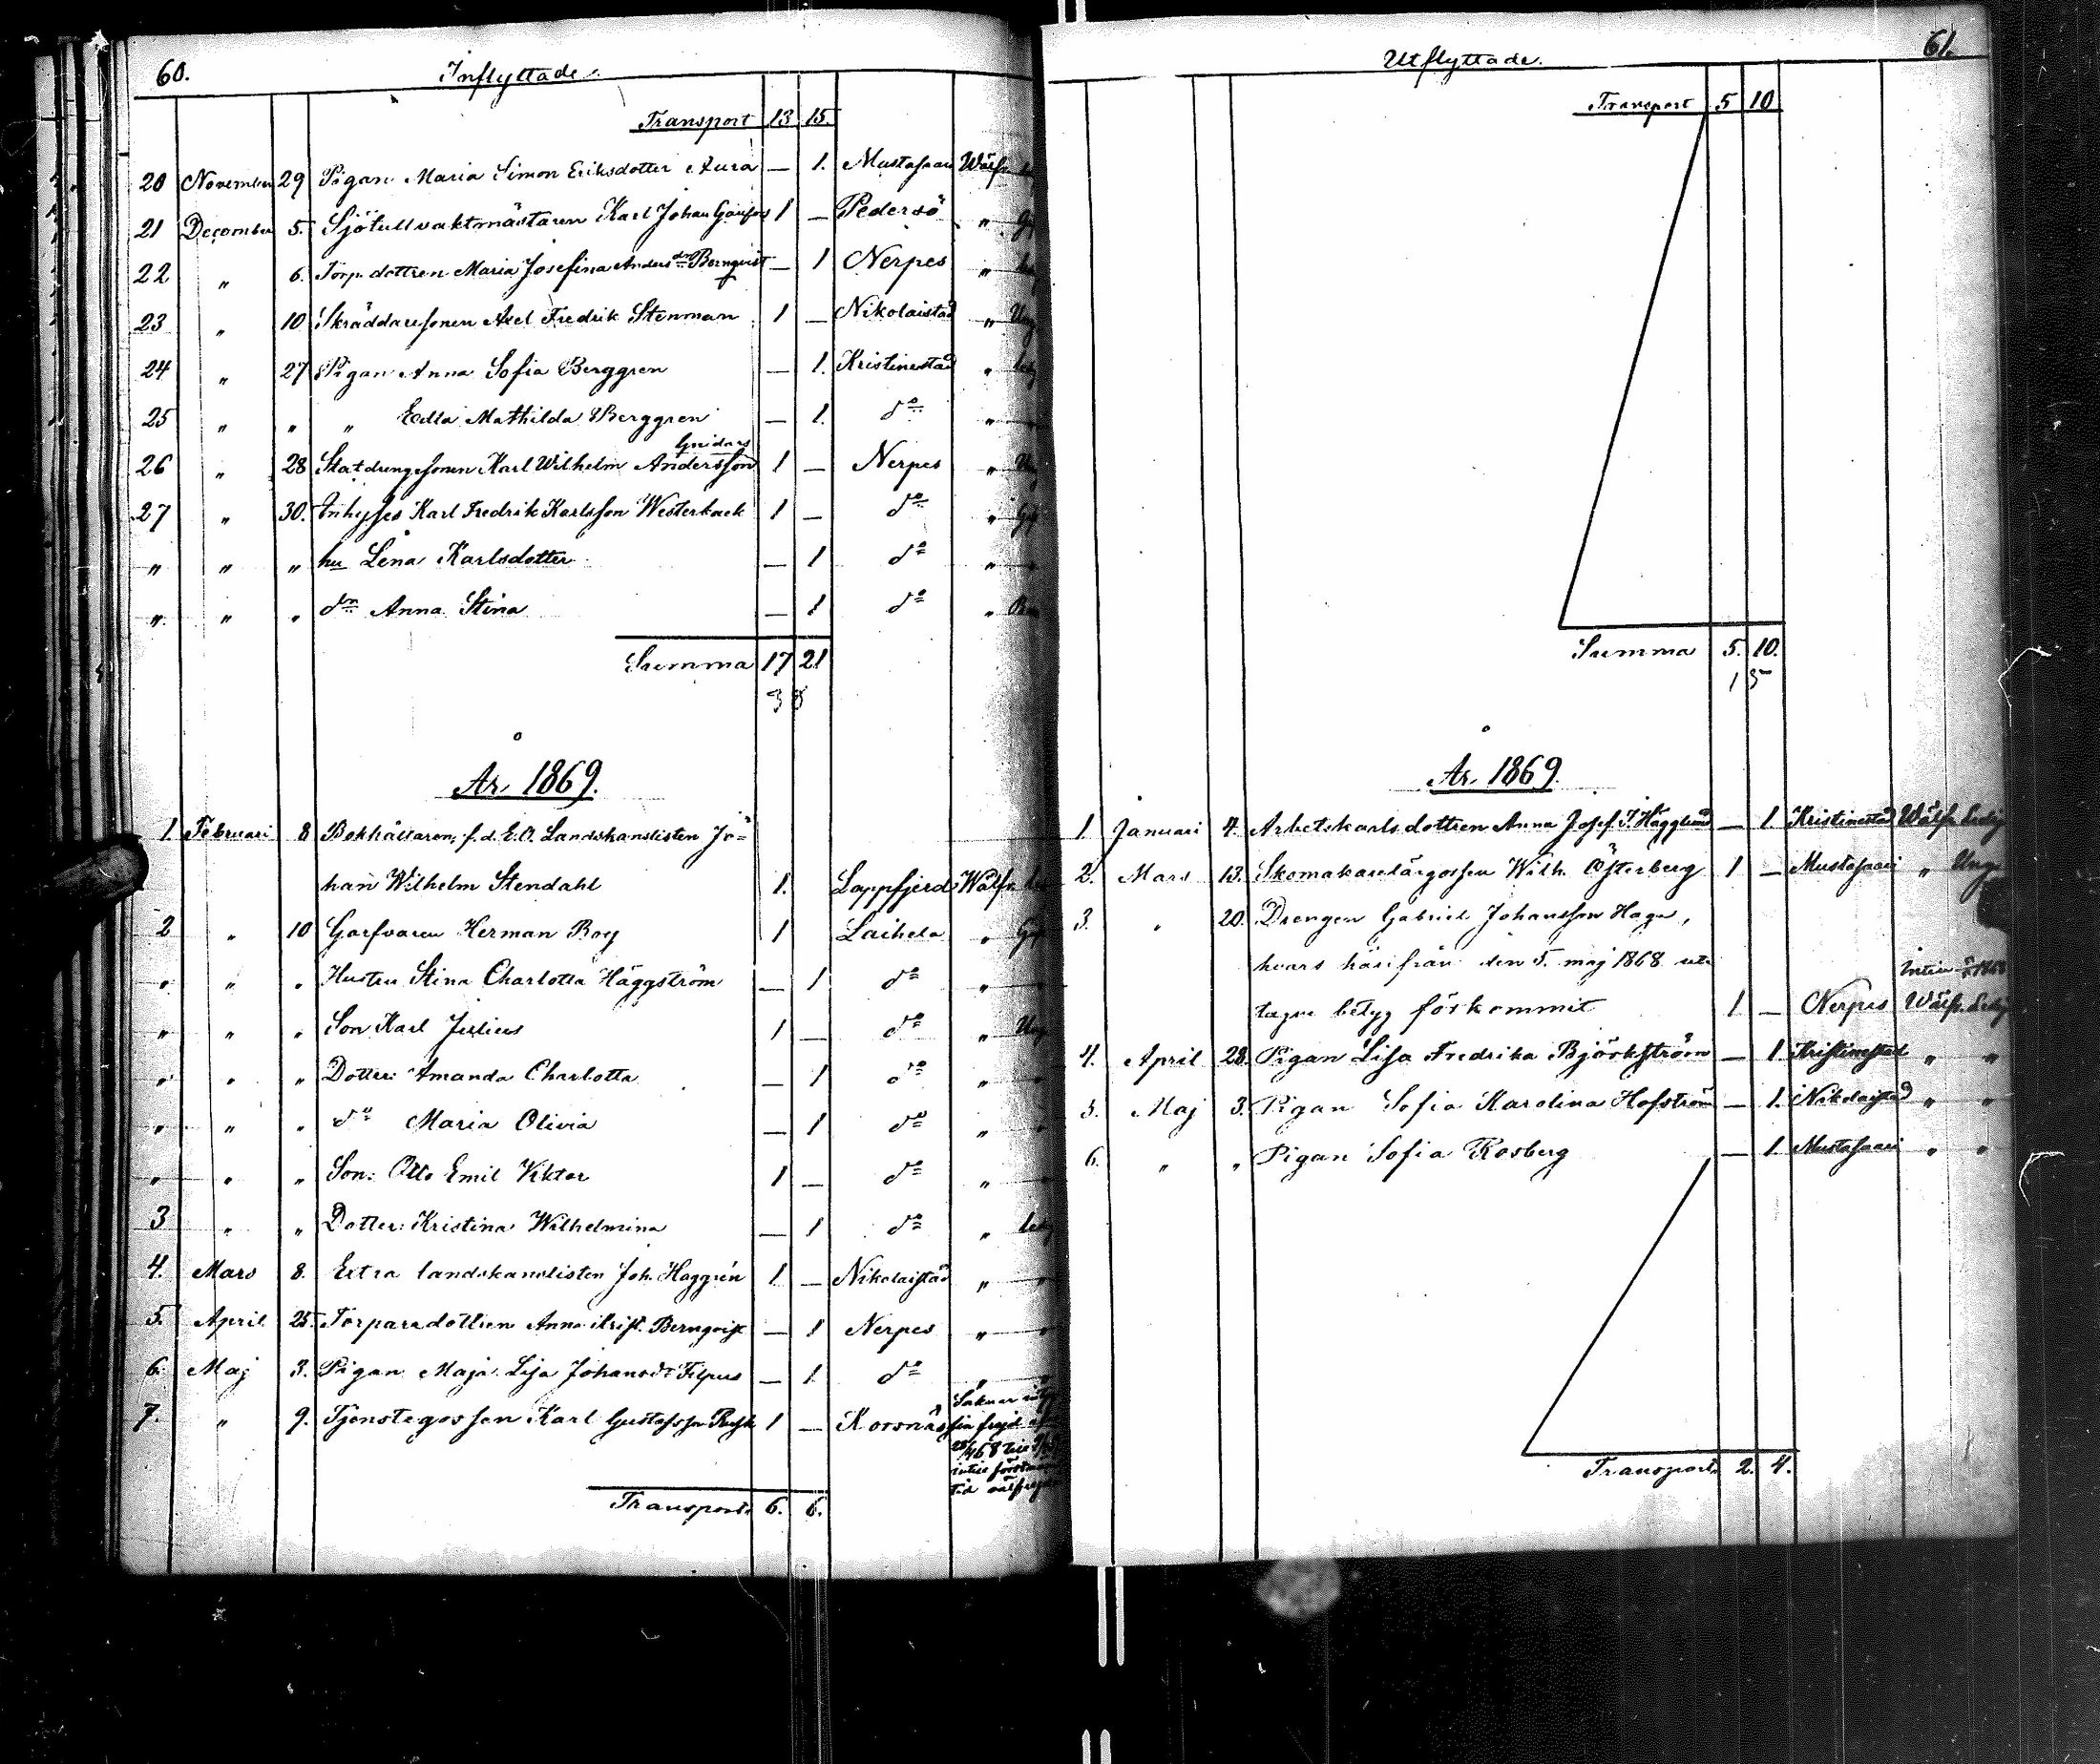 60.
Inflyttade.
Transport 13 15.
20 November 29 Pigan Maria Simon Eriksdotter Aura — 1. Mustasaari Wälfr.
21 December 5. Sjötullvaktmästaren Karl Johan 1 — Pedersö "
22 " 6. Torp. dottren Maria Josefina Anders dr Bernqvist — 1 Nerpes "
23 " 10 Skräddaresonen Axel Fredrik Stenman 1 — Nikolaistad " Ung
24 " 27 Pigan Anna Sofia Berggren — 1. Kristinestad "
25 " " " Edla Mathilda Berggren — 1. do "
26 " 28 Statdrengssonen Karl Wilhelm Andersson Gnidars 1 — Nerpes "
27 " 30. Inhyses Karl Fredrik Karlsson Westerback 1 — do "
" " " hu Lena Karlsdotter — 1 do "
" " " dr Anna Stina — 1 do "
Summa 17 21
38
År 1869.
1. Februari 8 Bokhållaren, f.d. E.O. Landskanslisten Jo=
han Wilhelm Stendahl 1. Lappfjerd Wälfr.
2 " 10 Garfvaren Herman Boy 1 Laihela "
" " " Hustru Stina Charlotta Häggström — 1 do "
" " " Son Karl Julius 1 — do " Ung
" " " Dotter: Amanda Charlotta — 1 do "
" " " do Maria Olivia — 1 do "
" " " Son: Otto Emil Viktor 1 — do "
3 " " Dotter: Kristina Wilhelmina — 1 do "
4. Mars 8. Extra landskanslisten Joh. Haggrén 1 — Nikolaistad "
5. April 25. Torparedottren Anna Krist. Bernqvist — 1 Nerpes "
6. Maj 3. Pigan Maja Lisa Johansdr Filpus — 1. do "
7. " 9. Tjenstegossen Karl Gustafsson 1 — Korsnäs
Transport. 6. 6.
61.
Utflyttade.
Transport 5 10
Summa 5. 10.
15
År 1869.
1. Januari 4. Arbetskarlsdottren Anna Josef. J. Hägglund — 1. Kristinestad Wälfr. Ledig
2. Mars 13. Skomakarelärgossen Wilh. Österberg 1 — Mustasaari " Ung
3. " 20. Drengen Gabriel Johansson Haga,
hvars härifrån den 5. maj 1868 ut-
tagne betyg förkommit 1 — Nerpes Wälfr. Ledig
4. April 28. Pigan Lisa Fredrika Björkström — 1. Kristinestad " "
5. Maj 3. Pigan Sofia Karolina Hofström — 1. Nikolaistad " "
6. " " Pigan Sofia Rosberg — 1. Mustasaari " "
Transport. 2. 4.